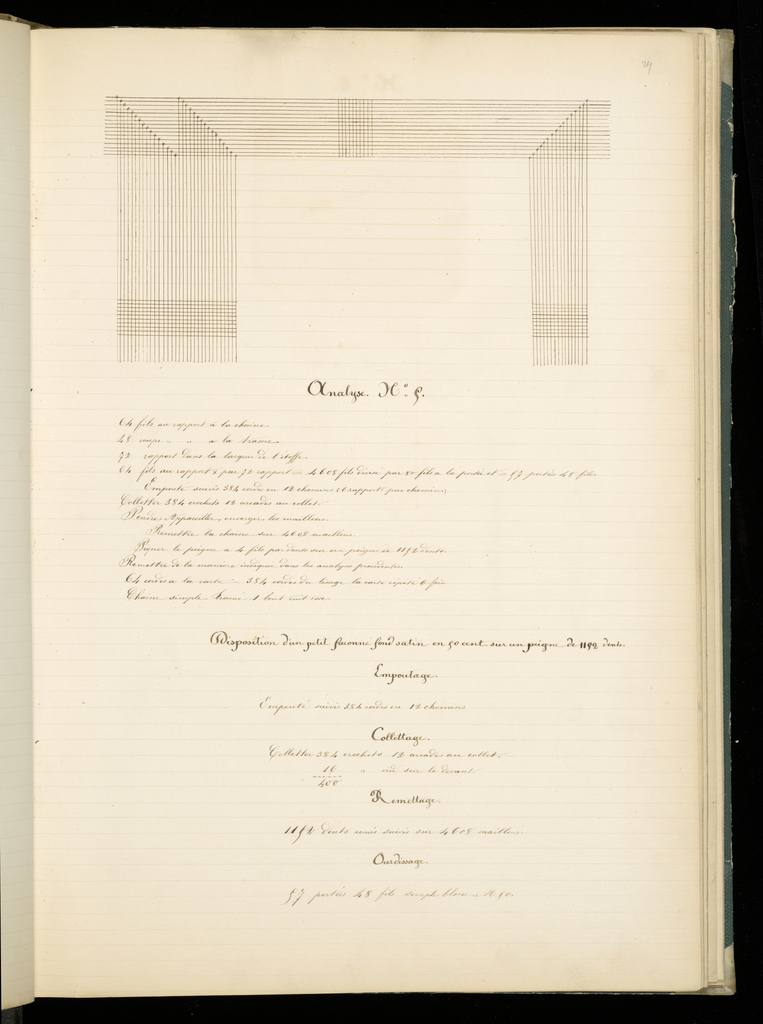 Analyse. N° 5.
64 fils au rapport a la chaine.
48 coups " " a la trame.
72 rapport dans la largeur de l'etoffe.
64 fils au rapport x par 72 rapport = 4608 fils divisé par 80 fils a la portée et = 57 portées 48 fils
Empouté suivis 384 cordes en 12 chemins (6 rapports par chemins)
Colletter 384 crochets 12 arcades au collet.
Pendre, Appareiller, enverger les maillons.
Remettre la chaine sur 4608 maillons
Piquer le peigne a 4 fils par dents sur un peigne de 1152 dents.
Remettre de la maniere indiquée dans les analyse precedentes.
64 cordes a la carte = 384 cordes du lisage la carte repete 6 fois
Chaine simple Trame 1 bout cuit rose.
Disposition d'un petit façonné fond satin en 50 cent. sur un peigne de 1152 dents.
Empoutage.
Empouté suivis 384 cordes en 12 chemins
Collettage.
Colletter 384 crochets 12 arcades au collet.
16 " sur le devant.
400
Remettage.
1152 dents remis suivis sur 4608 maillons.
Ourdissage.
57 portées 48 fils simple blanc